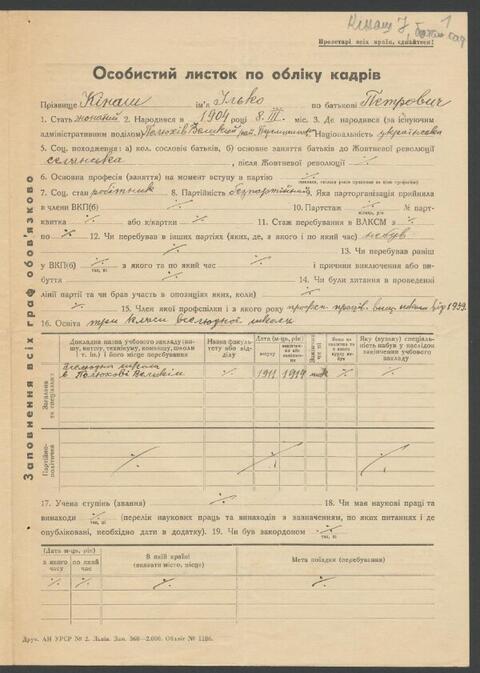 Кінаш І, 1
Пролетарі всіх країн, єднайтеся!
Особистий листок по обліку кадрів
Прізвище Кінаш ім'я Ілько по батькові Петрович
1. Стать 2. Народився в 1904 році 8. III. міс. 3. Де народився (за існуючим
адміністративним поділом) Національність українська
5. Соц. походження: а) кол. сословіє батьків, б) основне заняття батьків до Жовтневої революції
селянська, після Жовтневої революції ·/.
6. Основна професія (заняття) на момент вступу в партію ·/.
7. Соц. стан робітник 8. Партійність безпартійний 9. Яка парторганізація прийняла
в члени ВКП(б) ·/. 10. Партстаж ·/. № парт-
місяць, рік
квитка ·/. або к/картки ·/. 11. Стаж перебування в ВЛКСМ з ·/.
по ·/. 12. Чи перебував в інших партіях (яких, де, з якого і по який час) не був
13. Чи перебував раніш
у ВКП(б) ·/. з якого та по який час ·/. і причини виключення або ви-
так, ні
буття ·/. 14. Чи були хитання в проведенні
лінії партії та чи брав участь в опозиціях яких, коли) ·/.
·/. 15. Член якої профспілки і з якого року від 1939.
16. Освіта три класи вселюдної школи
Заповнення всіх граф обов'язково
Загальна та спеціальна
Докладна назва учбового закладу (вищу, вечтуз, технікуму, комвишу, школи і т. ін.) і його місце перебування
Назва факультету або відділу
Дата (м-ць, рік)
вступу
Яку (вузьку) спеціальність набув в наслідок закінчення учбового закладу
Вселюдна школа ·/. 1911 1914 ·/. ·/.
в Полюхові Великім
Партійно-політична
·/. ·/. ·/. ·/.
17. Учена ступінь (звання) ·/. 18. Чи мав наукові праці та
винаходи ·/. (перелік наукових праць та винаходів з зазначенням, по яких питаннях і де
так, ні
опубліковані, необхідно дати в додатку). 19. Чи був закордоном ·/.
так, ні
Дата (м-ць, рік)
з якого часу
по який час
В якій країні (вказати місто, місце)
Мета поїздки (перебування)
·/. ·/. ·/. ·/.
Друк. АН УРСР № 2. Львів. Зам. 360—2.000. Обліт № 1186.